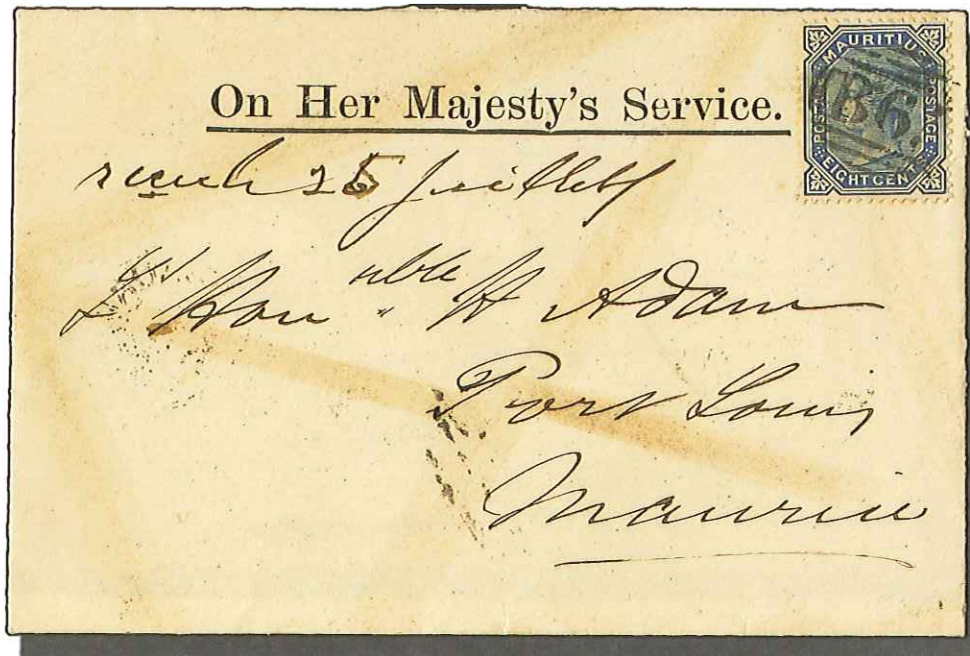 On Her Majesty's Service.
MAURITIUS
POSTAGE
POSTAGE
EIGHT CENTS
B65
25 Juillet
L' Hon nble H Adam
Port Louis
Maurice